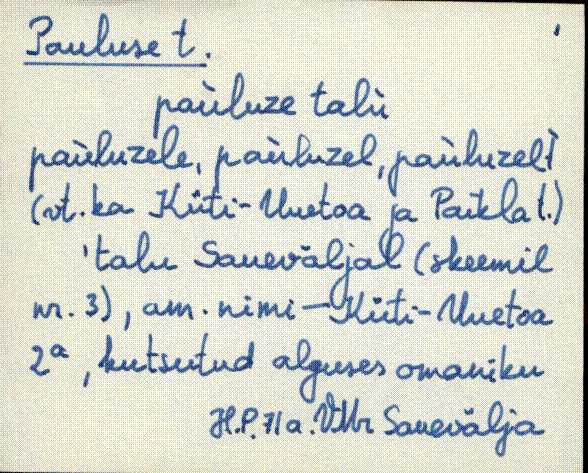 Pauluse t.
pau̇luze talu̇
pau̇luzele, pau̇luzel, pau̇luzelt
(vt. ka Küti-Uuetoa ja Paikla t.)
'talu Saueväljal (skeemil
nr. 3), am. nimi – Küti-Uuetoa
2ª, kutsutud alguses omaniku
H.P. 71a. VMr Sauevälja